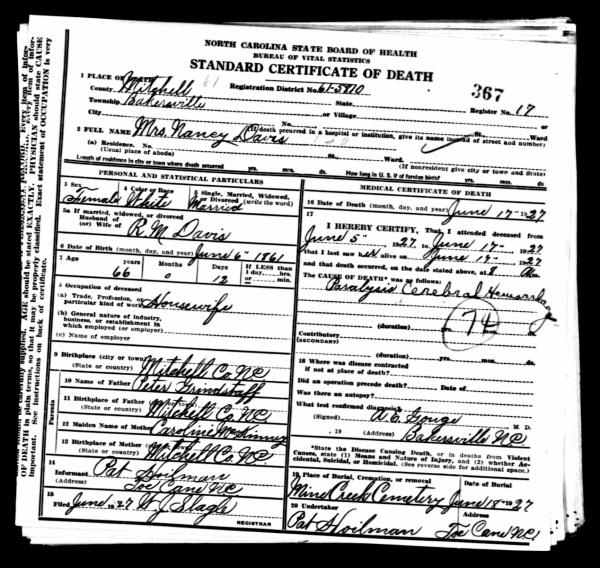 NORTH CAROLINA STATE BOARD OF HEALTH
BUREAU OF VITAL STATISTICS
STANDARD CERTIFICATE OF DEATH
1 PLACE OF DEATH
County Mitchell
Registration District No. 61-5710
367
Township Bakersville
State
Register No. 17
City
or Village
No.
St.
Ward
(If death occurred in a hospital or institution, give its name instead of street and number)
2 FULL NAME Mrs. Nancy Davis
(a) Residence. No.
St.
Ward.
(Usual place of abode)
(If nonresident give city or town and State)
Length of residence in city or town where death occurred yrs. mos. ds.
How long in U. S. if of foreign birth? yrs. mos. ds.
PERSONAL AND STATISTICAL PARTICULARS
3 Sex Female
4 Color or Race White
5 Single, Married, Widowed, or Divorced (write the word) Married
5a If married, widowed, or divorced
Husband of
(or) Wife of R. M. Davis
6 Date of Birth (month, day, and year) June 6" 1861
7 Age Years Months Days If LESS than
1 day, hrs.
or min.
66 0 12
8 Occupation of deceased
(a) Trade, Profession, or
particular kind of work Housewife
(b) General nature of industry,
business, or establishment in
which employed (or employer)
(c) Name of employer
9 Birthplace (city or town) Mitchell Co NC
(State or country)
10 Name of Father Peter Grindstaff
11 Birthplace of Father
(State or country) Mitchell Co. N.C.
12 Maiden Name of Mother Caroline McKinney
13 Birthplace of Mother
(State or country) Mitchell Co. N.C.
Parents
14
Informant Pat Hoilman
(Address) Toe Cane N.C.
15
Filed June 1927 W. J. Slagle
REGISTRAR
MEDICAL CERTIFICATE OF DEATH
16 Date of Death (month, day, and year) June 17" 1927
17
I HEREBY CERTIFY, That I attended deceased from
June 5" 1927, to June 17" 1927
that I last saw her alive on June 17" 1927
and that death occurred, on the date stated above, at 8 m.
The CAUSE OF DEATH* was as follows:
Paralysis Cerebral Hemorrhage
74
(duration) yrs. mos. ds.
Contributory
(SECONDARY)
(duration) yrs. mos. ds.
18 Where was disease contracted
if not at place of death?
Did an operation precede death? Date of
Was there an autopsy?
What test confirmed diagnosis?
(Signed) A. E. Gouge M. D.
, 19 (Address) Bakersville N.C.
*State the Disease Causing Death, or in deaths from Violent
Causes, state (1) Means and Nature of Injury, and (2) whether Ac-
cidental, Suicidal, or Homicidal. (See reverse side for additional space.)
19 Place of Burial, Cremation, or removal
Date of Burial
Mine Creek Cemetery June 18" 1927
20 Undertaker
Address
Pat Hoilman Toe Cane N.C.